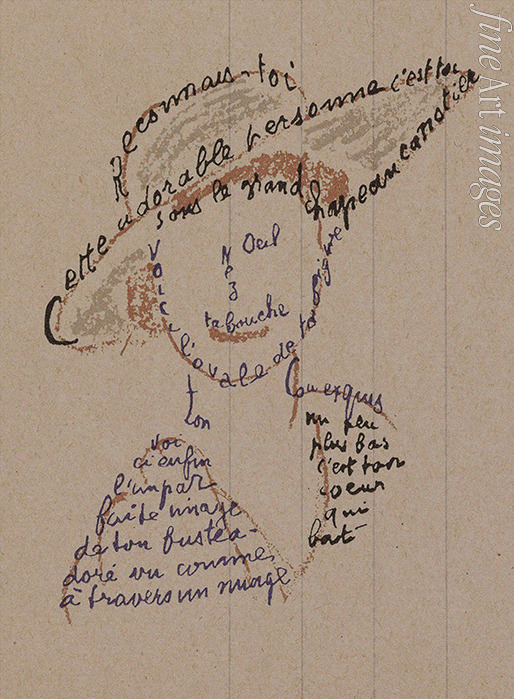 Reconnais-toi
Cette adorable personne c'est toi
Sous le grand chapeau canotier
Oeil
Nez
ta bouche
Voici l'ovale de ta figure
ton
Cou exquis
Voi
ci enfin
l'impar
faite image
de ton buste a-
doré vu comme
à travers un nuage
un peu
plus bas
c'est ton
coeur
qui
bat
fineArtimages